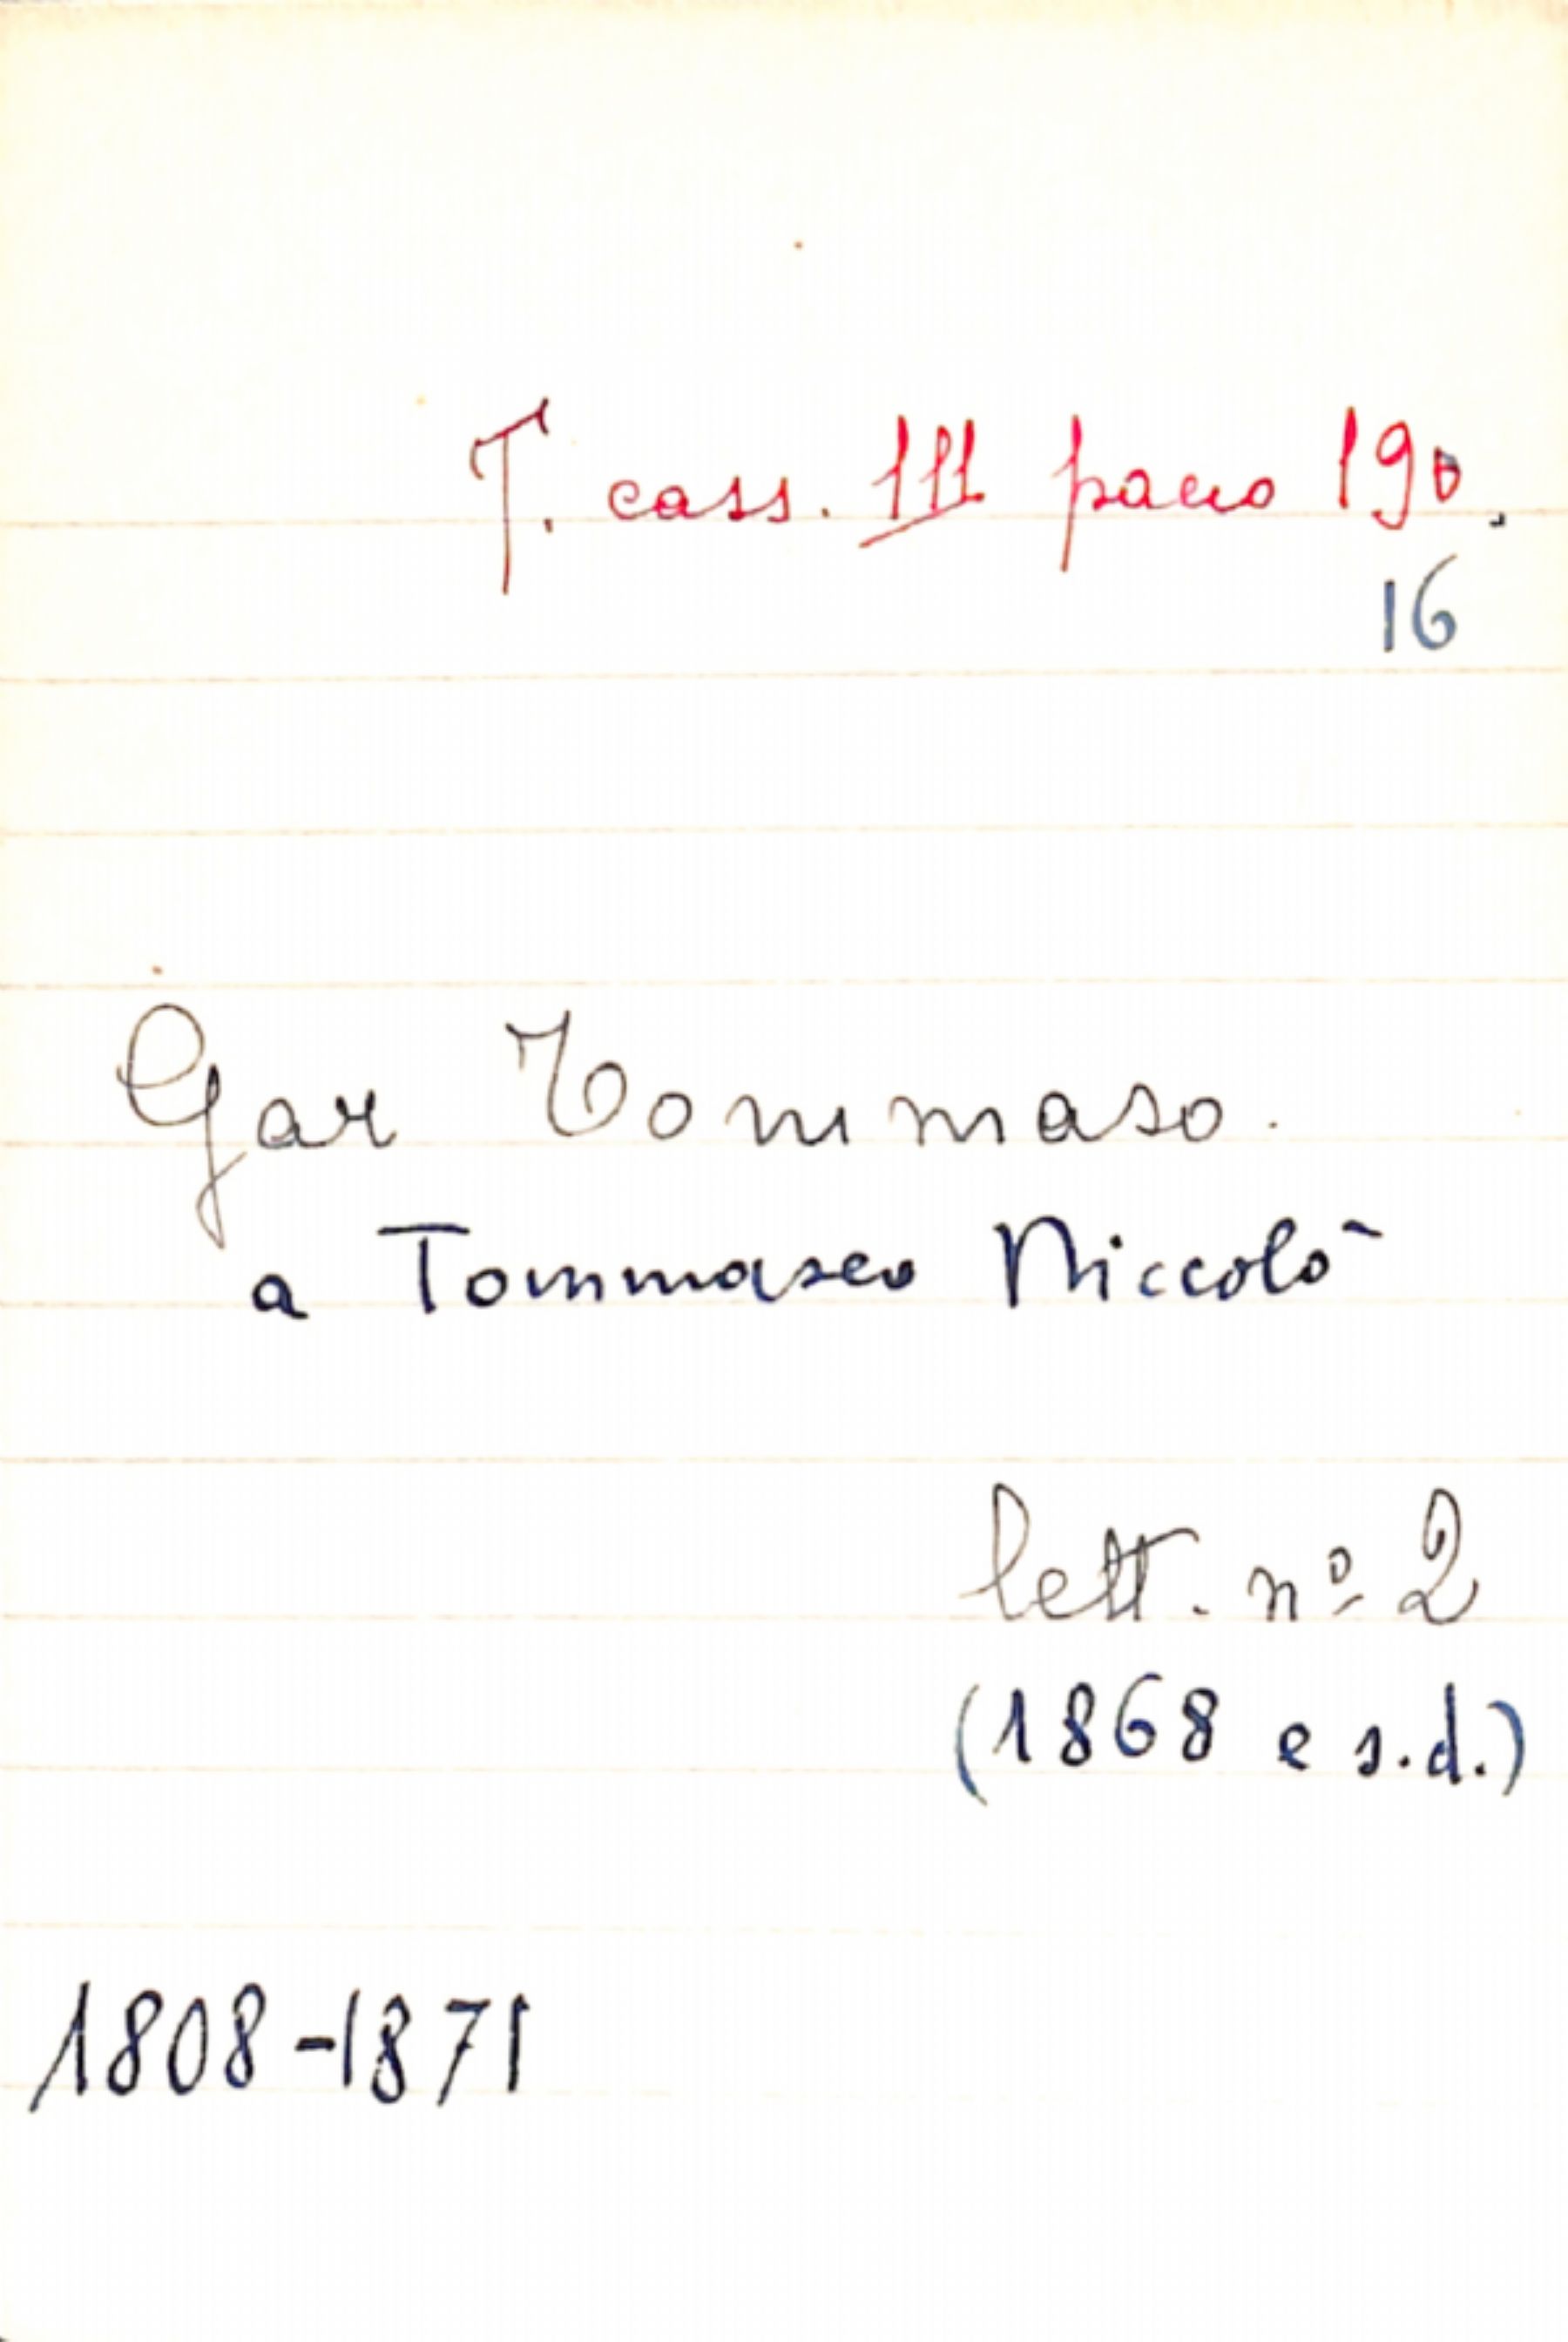 T. cass. III pacco 190.
16
Gar Tommaso.
a Tommaseo Niccolò
lett. nº 2
(1868 e s.d.)
1808-1871